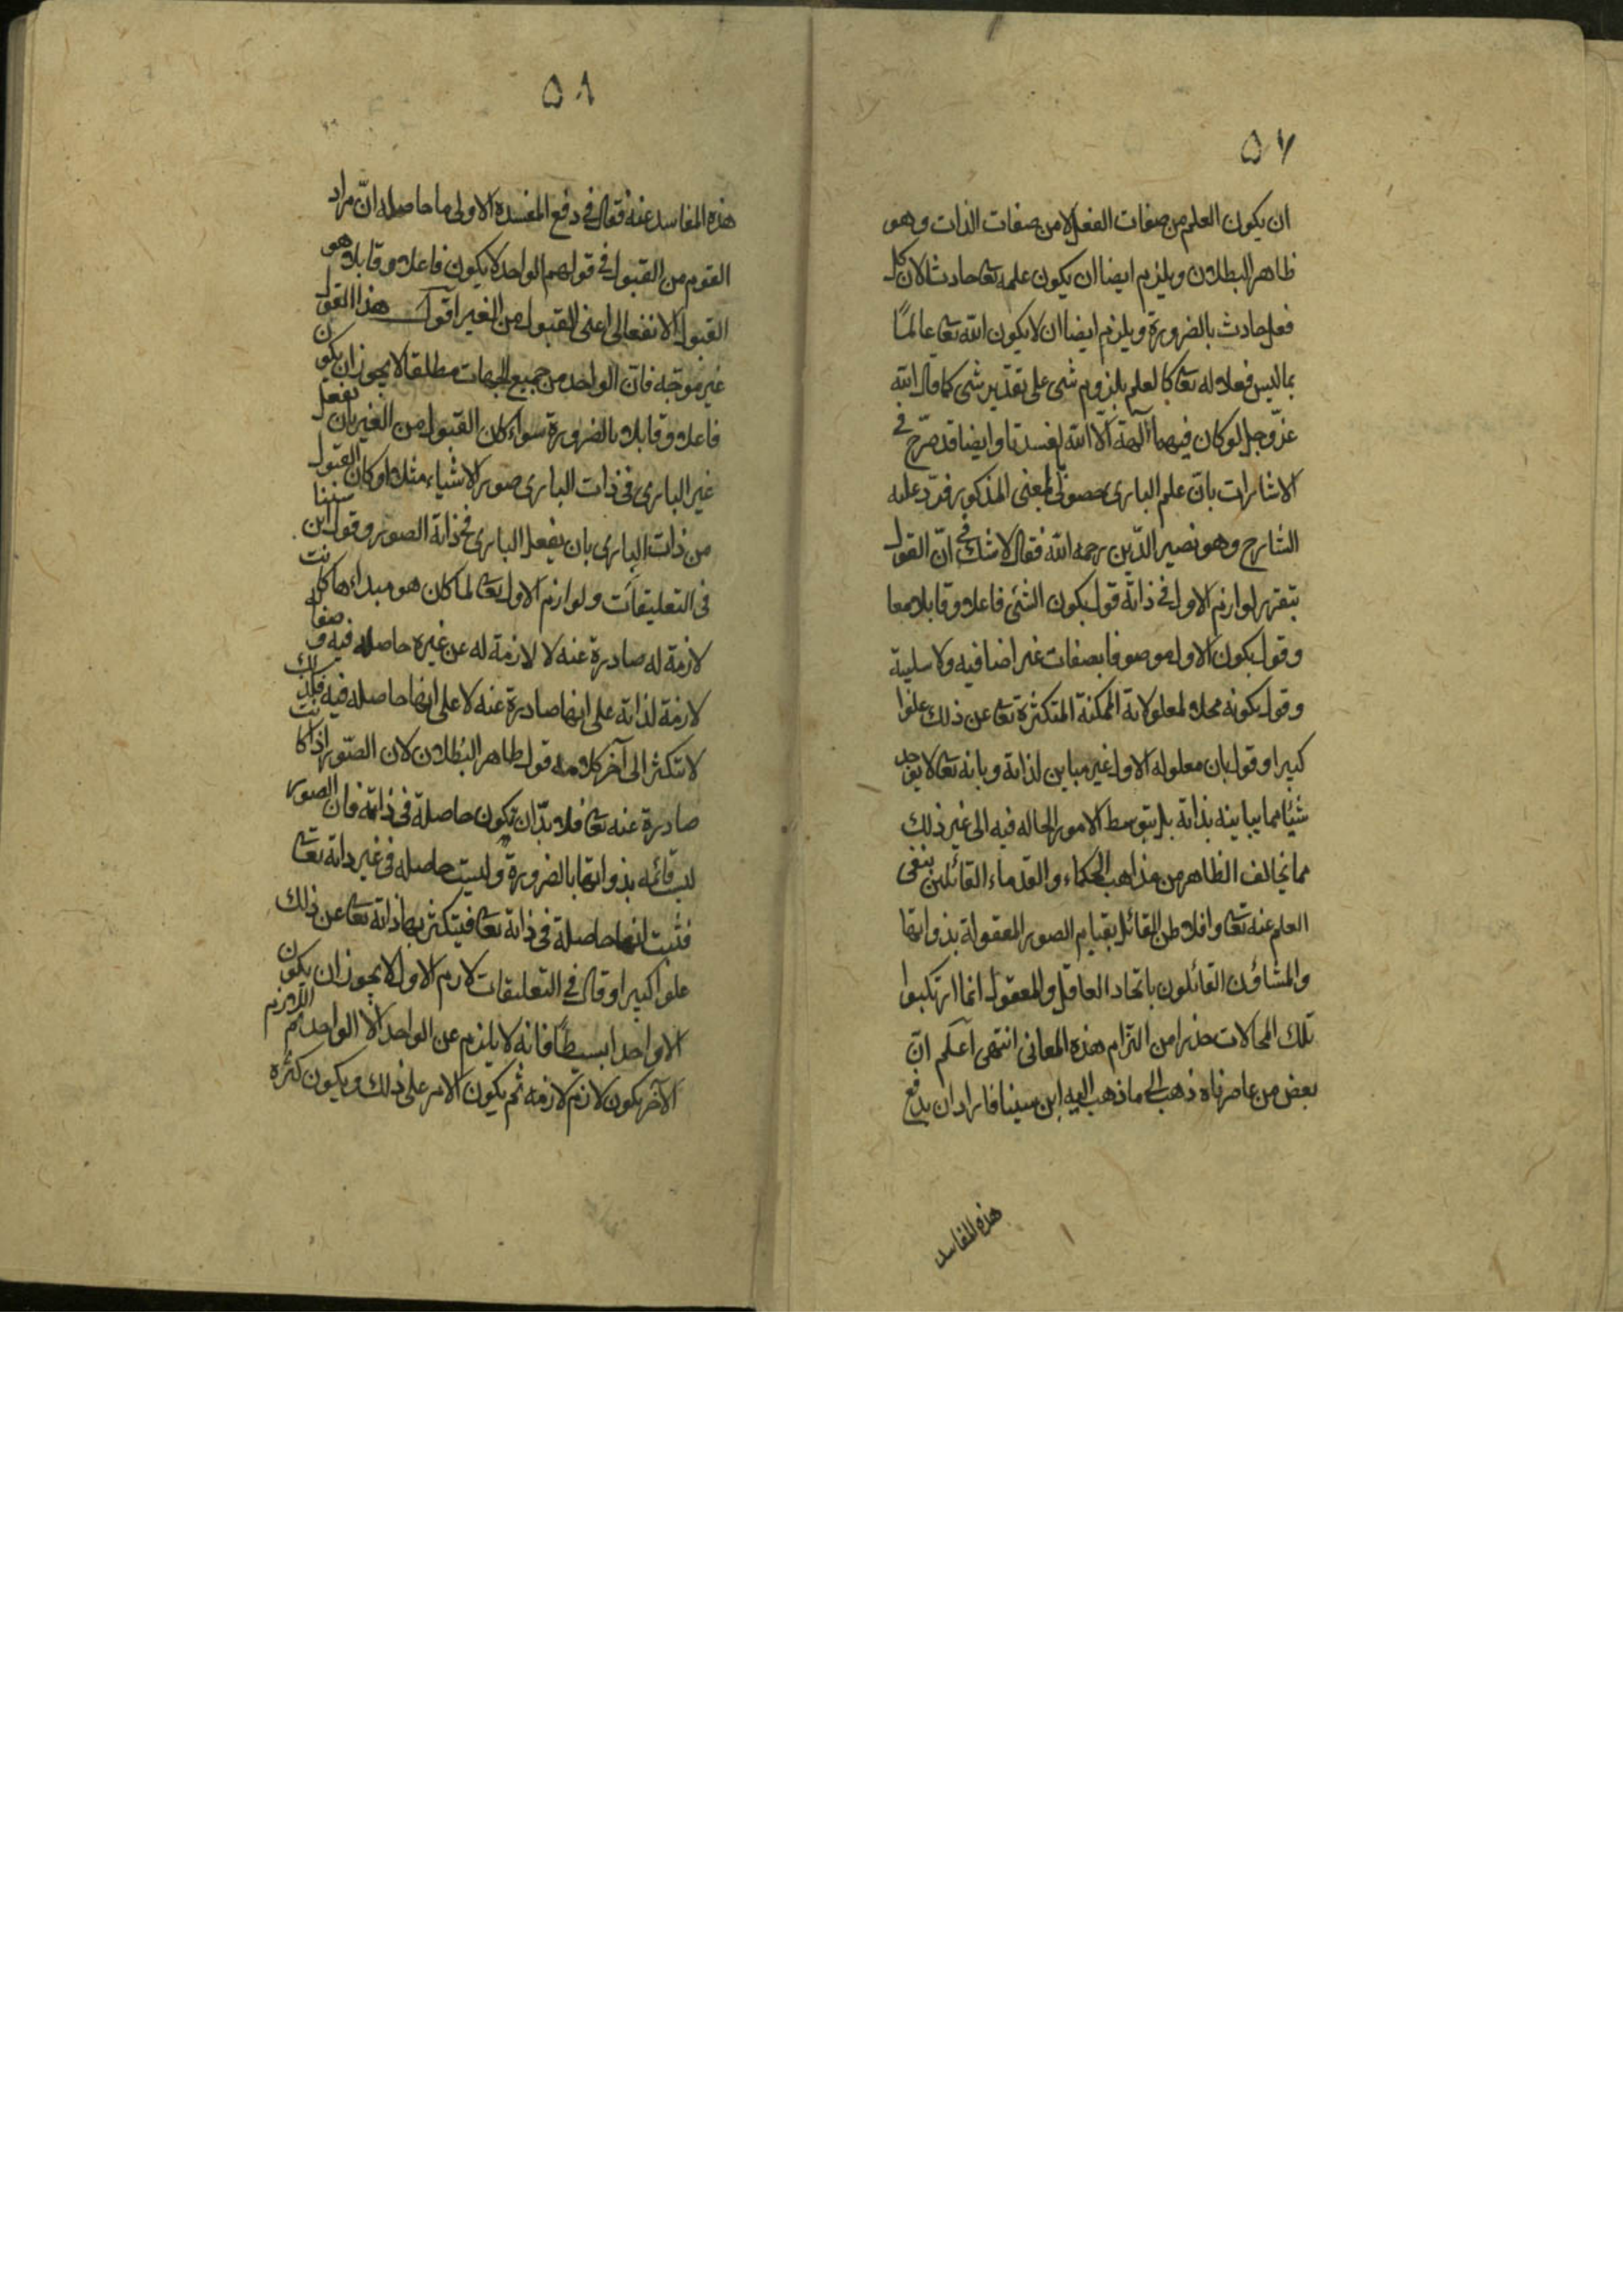 ٥٧
ان يكون العلم من صفات الفعل لا من صفات الذات وهو
ظاهر البطلان ويلزم ايضا ان يكون علمه تعا حادثا لان كل
فعل حادث بالضرورة ويلزم ايضا ان لا يكون الله تعا عالمًا
بما ليس فعلا له تعا كالعلم بلزوم شى على تقدير شى كما قال الله
عزّ وجل لو كان فيهما آلهة الا الله لفسدتا وايضا قد صرّح فى
الاشارات بانّ علم البارى حصولىّ بالمعنى المذكور فردّ عليه
الشارح وهو نصير الدّين رحمه الله فقال لا شك فى انّ القول
بتقرر لوازم الاول فى ذاته قول بكون الشئ فاعلا وقابلا معا
وقول بكون الاول موصوفا بصفات غير اضافيه ولا سلبية
وقول بكونه محلا لمعلولاته الممكنة المتكثرة تعا عن ذلك علوا
كبيرا وقول بان معلوله الاول غير مباين لذاته وبانه تعا لا يوجد
شيئا مما يباينه بذاته بل بتوسط الامور الحاله فيه الى غير ذلك
مما يخالف الظاهر من مذاهب الحكماء والقدماء القائلين بنفى
العلم عنه تعا وافلاطن القائل بقيام الصور المعقولة بذواتها
والمشاؤن القائلون باتحاد العاقل والمعقول انما ارتكبوا
تلك المحالات حذرا من التزام هذه المعانى انتهى اعلم انّ
بعض من عاصرناه ذهب الى ما ذهب اليه ابن سينا فاراد ان يدفع
هذه المفاسد
٥٨
هذه المفاسد عنه فقال فى دفع المفسدة الاولى ما حاصله انّ مراد
القوم من القبول فى قولهم الواحد لا يكون فاعلا وقابلا هو
القبول الانفعالى اعنى القبول من الغير اقول هذا القول
غير موجّه فانّ الواحد من جميع الجهات مطلقا لا يجوز ان يكون
فاعلا وقابلا بالضرورة سواء كان القبول من الغير بان يفعل
غير البارى فى ذات البارى صور الاشياء مثلا او كان القبول
من ذات البارى بان يفعل البارى فى ذاته الصور وقول ابن سينا
فى التعليقات ولوازم الاول تعا لما كان هو مبداءها كانت
لازمة له صادرة عنه لا لازمة له عن غيره حاصله فيه وصفاته
لازمة لذاته على انها صادرة عنه لا على انها حاصله فيه فلذلك
لا تتكثر الى آخر كلامه قول ظاهر البُطلان لان الصّور اذا كانت
صادرة عنه تعا فلا بدّ ان تكون حاصلة فى ذاته فان الصور
ليست قائمه بذواتها بالضرورة وليست حاصله فى غير ذاته تعا
فثبت انها حاصلة فى ذاته تعا فيتكثر بها ذاته تعا عن ذلك
علوا كبيرا وقال فى التعليقات لازم الاول لا يجوز ان يكون
الا واحدا بسيطًا فانه لا يلزم عن الواحد الا الواحد ثم اللازم
الآخر يكون لازم لازمه ثم يكون الامر على ذلك ويكون كثرة